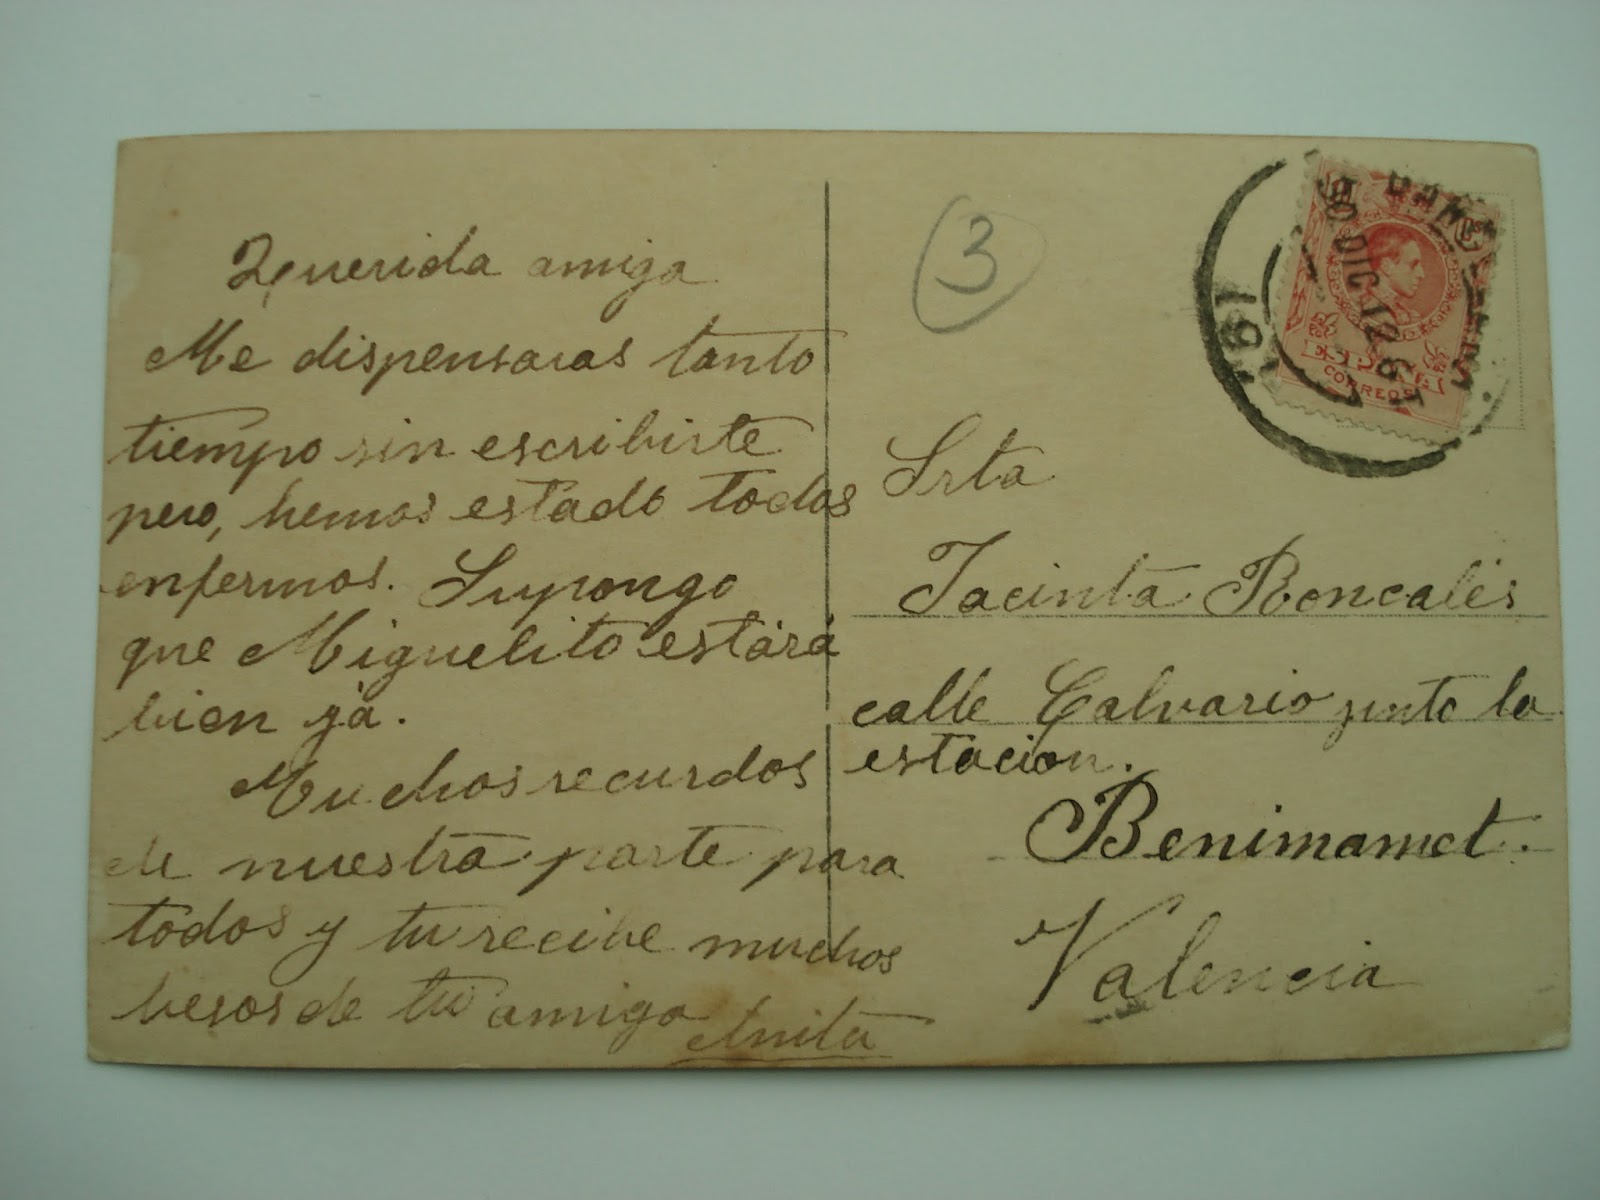 Querida amiga
Me dispensaras tanto
tiempo sin escribirte
pero, hemos estado todos
enfermos. Supongo
que Miguelito estará
bien ya.
Muchos recurdos
de nuestra parte para
todos y tu recibe muchos
besos de tu amiga Anita
3
DIC 12
CORREOS
Srta
Jacinta Roncalés
calle Calvario junto la
estacion.
Benimamet.
Valencia